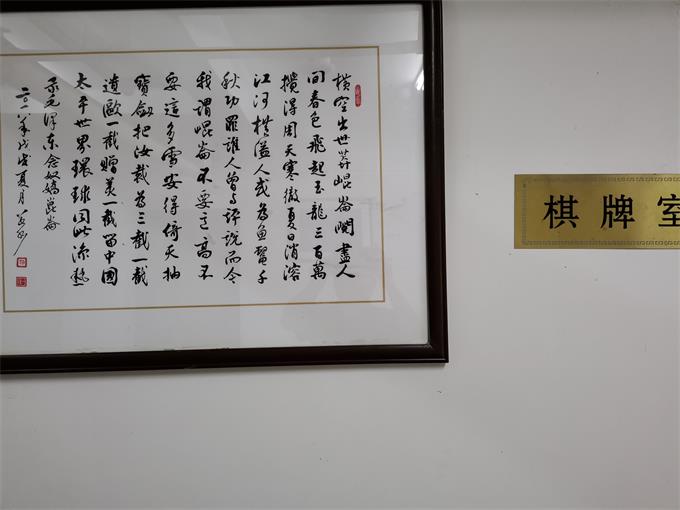 橫空出世莽崐崙閱盡人
间春色飛起玉龍三百萬
攪得周天寒徹夏日消溶
江河横溢人或为魚鱉千
秋功罪誰人曾与評说而今
我謂崐崙不要这高不
要這多雪安得倚天抽
寶劍把汝裁为三截一截
遺歐一截贈美一截留中國
太平世界環球同此凉热
录毛澤东念奴嬌崑崙
二〇一八年戊戌夏月
棋牌室